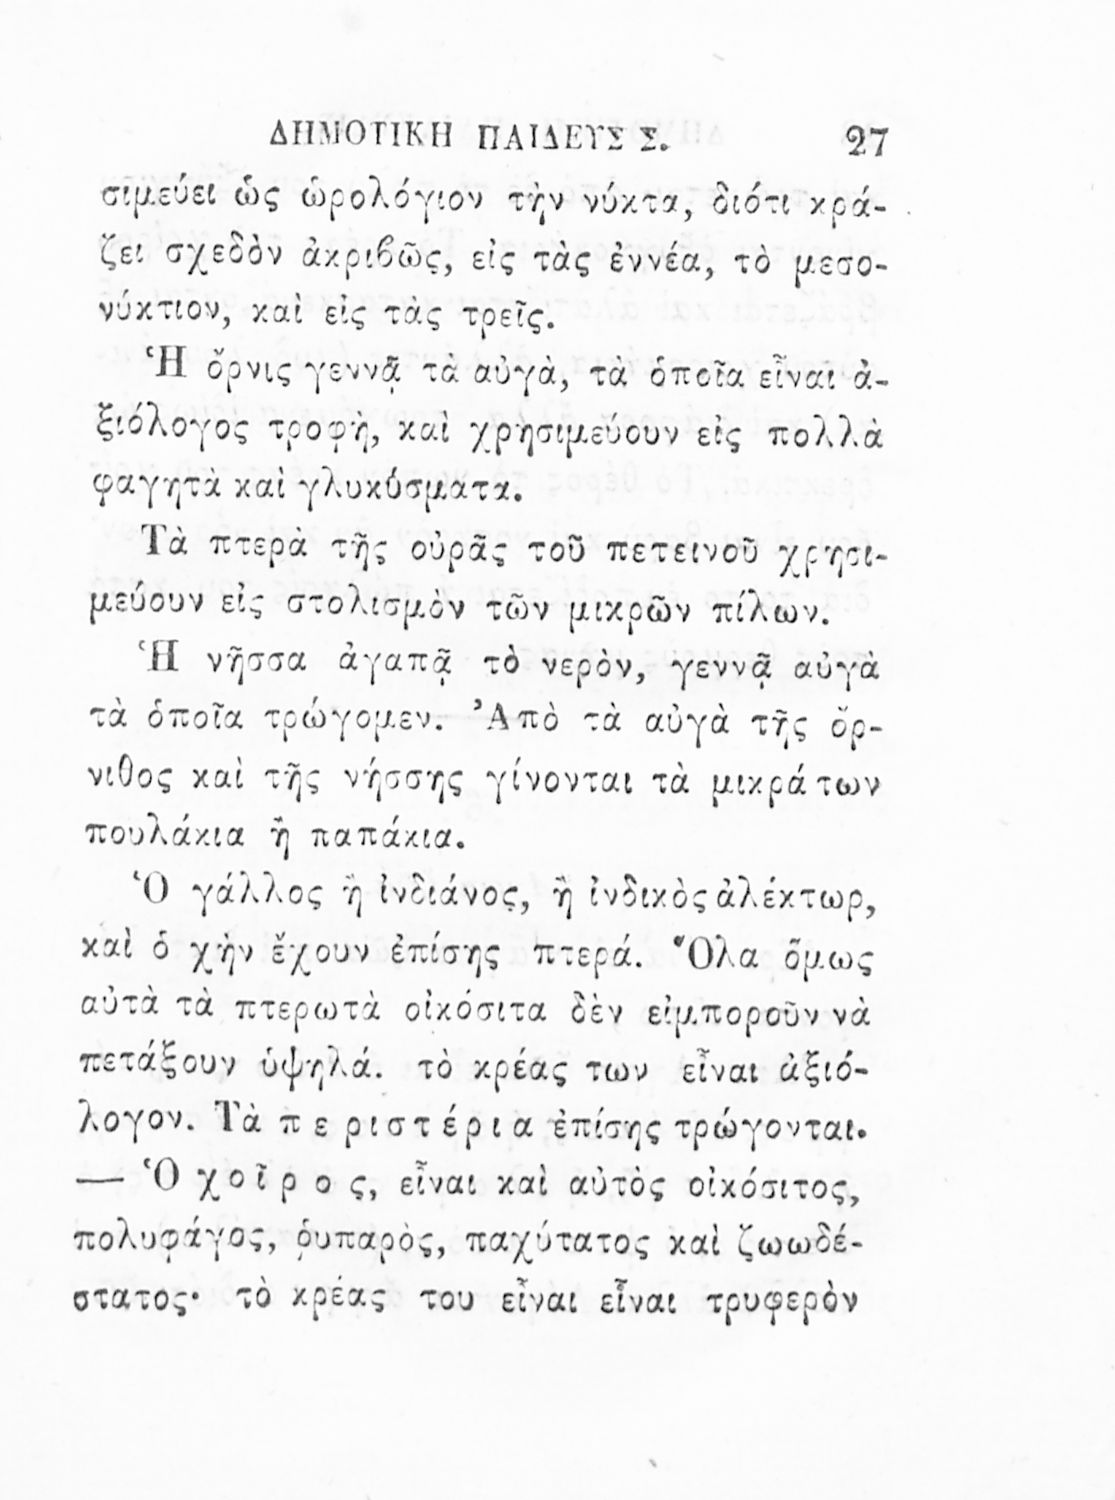 ΔΗΜΟΤΙΚΗ ΠΑΙΔΕΥΣ Σ. 27
σιμεύει ὡς ὡρολόγιον τὴν νύκτα, διότι κρά-
ζει σχεδὸν ἀκριβῶς, εἰς τὰς ἐννέα, τὸ μεσο-
νύκτιον, καὶ εἰς τὰς τρεῖς.
Ἡ ὄρνις γεννᾷ τὰ αὐγὰ, τὰ ὁποῖα εἶναι ἀ-
ξιόλογος τροφὴ, καὶ χρησιμεύουν εἰς πολλὰ
φαγητὰ καὶ γλυκύσματα.
Τὰ πτερὰ τῆς οὐρᾶς τοῦ πετεινοῦ χρησι-
μεύουν εἰς στολισμὸν τῶν μικρῶν πίλων.
Ἡ νῆσσα ἀγαπᾷ τὸ νερὸν, γεννᾷ αὐγὰ
τὰ ὁποῖα τρώγομεν. Ἀπὸ τὰ αὐγὰ τῆς ὄρ-
νιθος καὶ τῆς νήσσης γίνονται τὰ μικρά των
πουλάκια ἢ παπάκια.
Ὁ γάλλος ἢ ἰνδιάνος, ἢ ἰνδικὸς ἀλέκτωρ,
καὶ ὁ χὴν ἔχουν ἐπίσης πτερά. Ὅλα ὅμως
αὐτὰ τὰ πτερωτὰ οἰκόσιτα δὲν εἰμποροῦν νὰ
πετάξουν ὑψηλά. τὸ κρέας των εἶναι ἀξιό-
λογον. Τὰ π ε ρ ι σ τ έ ρ ι α ἐπίσης τρώγονται.
— Ὁ χ ο ῖ ρ ο ς, εἶναι καὶ αὐτὸς οἰκόσιτος,
πολυφάγος, ῥυπαρὸς, παχύτατος καὶ ζωωδέ-
στατος· τὸ κρέας του εἶναι εἶναι τρυφερὸν